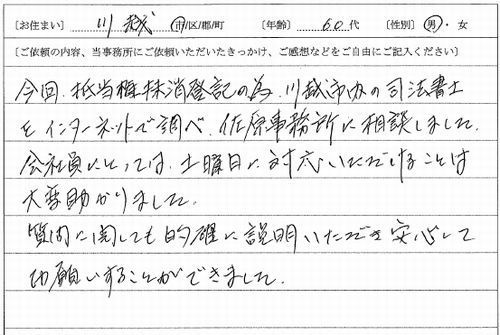 ［お住まい］ 川越 市/区/郡/町 ［年齢］ 60代 ［性別］ 男・女
［ご依頼の内容、当事務所にご依頼いただいたきっかけ、ご感想などをご自由にご記入ください］
今回、抵当権抹消登記の為、川越市内の司法書士
をインターネットで調べ、佐原事務所に相談しました。
会社員にとっては、土曜日に対応いただけることは
大変助かりました。
質問に関しても的確に説明いただき安心して
お願いすることができました。